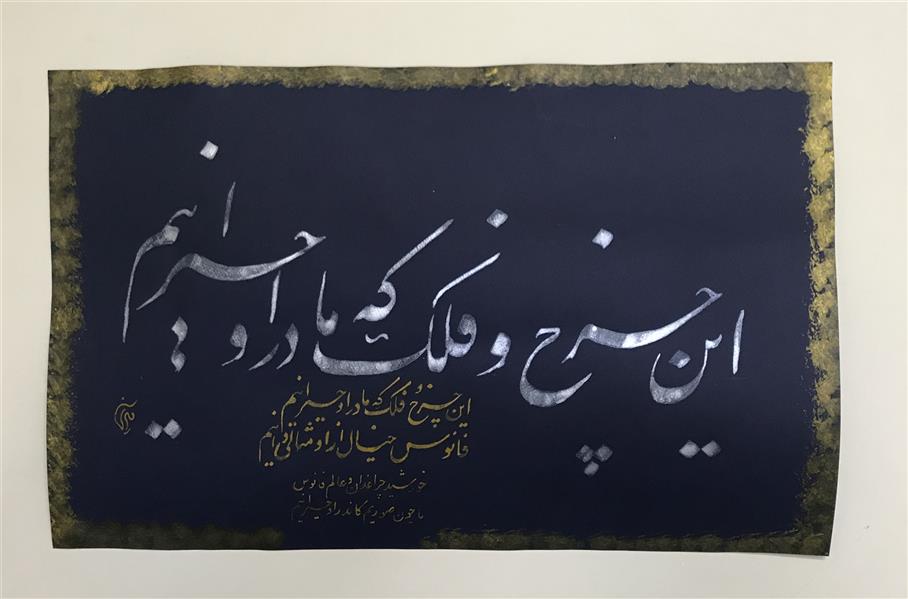 این چرخ و فلک که ما در او حیرانیم
این چرخ و فلک که ما در او حیرانیم
فانوس خیال از او مثالی دانیم
خورشید چراغدان و عالم فانوس
ما چون صوریم کاندر او حیرانیم